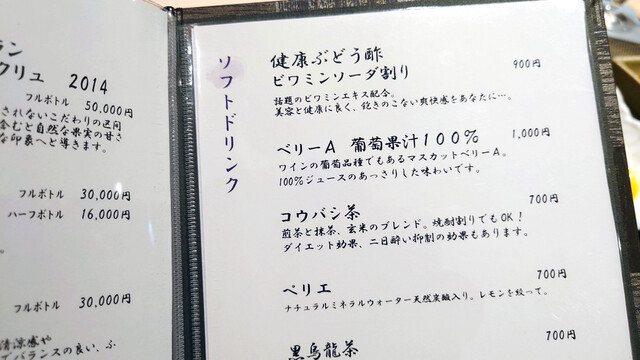 ラン
クリュ 2014
フルボトル 50,000円
されないこだわりの区画
含むと自然な果実の甘さ
な印象へと導きます。
フルボトル 30,000円
ハーフボトル 16,000円
フルボトル 30,000円
清涼感や
でバランスの良い、ふ
ソフトドリンク
健康ぶどう酢
ビワミンソーダ割り 900円
話題のビワミンエキス配合。
美容と健康に良く、飽きのこない爽快感をあなたに…。
ベリーA 葡萄果汁100% 1,000円
ワインの葡萄品種でもあるマスカットベリーA。
100%ジュースのあっさりした味わいです。
コウバシ茶 700円
煎茶と抹茶、玄米のブレンド。焼酎割りでもOK!
ダイエット効果、二日酔い抑制の効果もあります。
ペリエ 700円
ナチュラルミネラルウォーター天然炭酸入り。レモンを絞って。
黒烏龍茶 700円